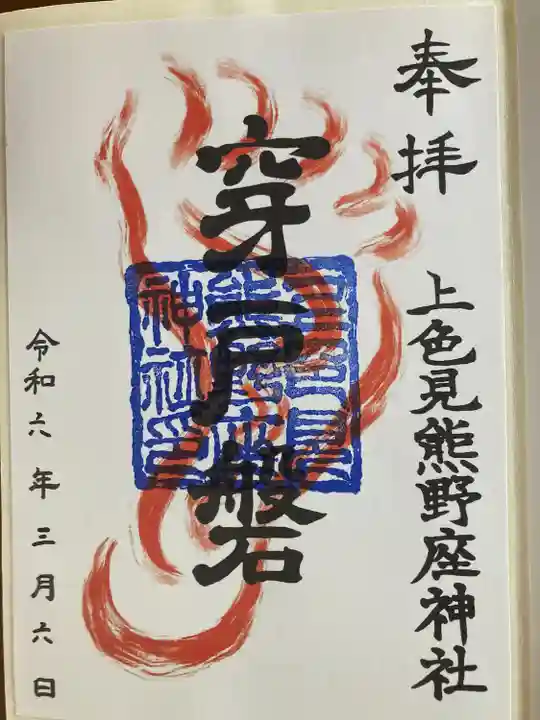 奉拝
上色見熊野座神社
穿戸磐
神社
令和六年三月六日